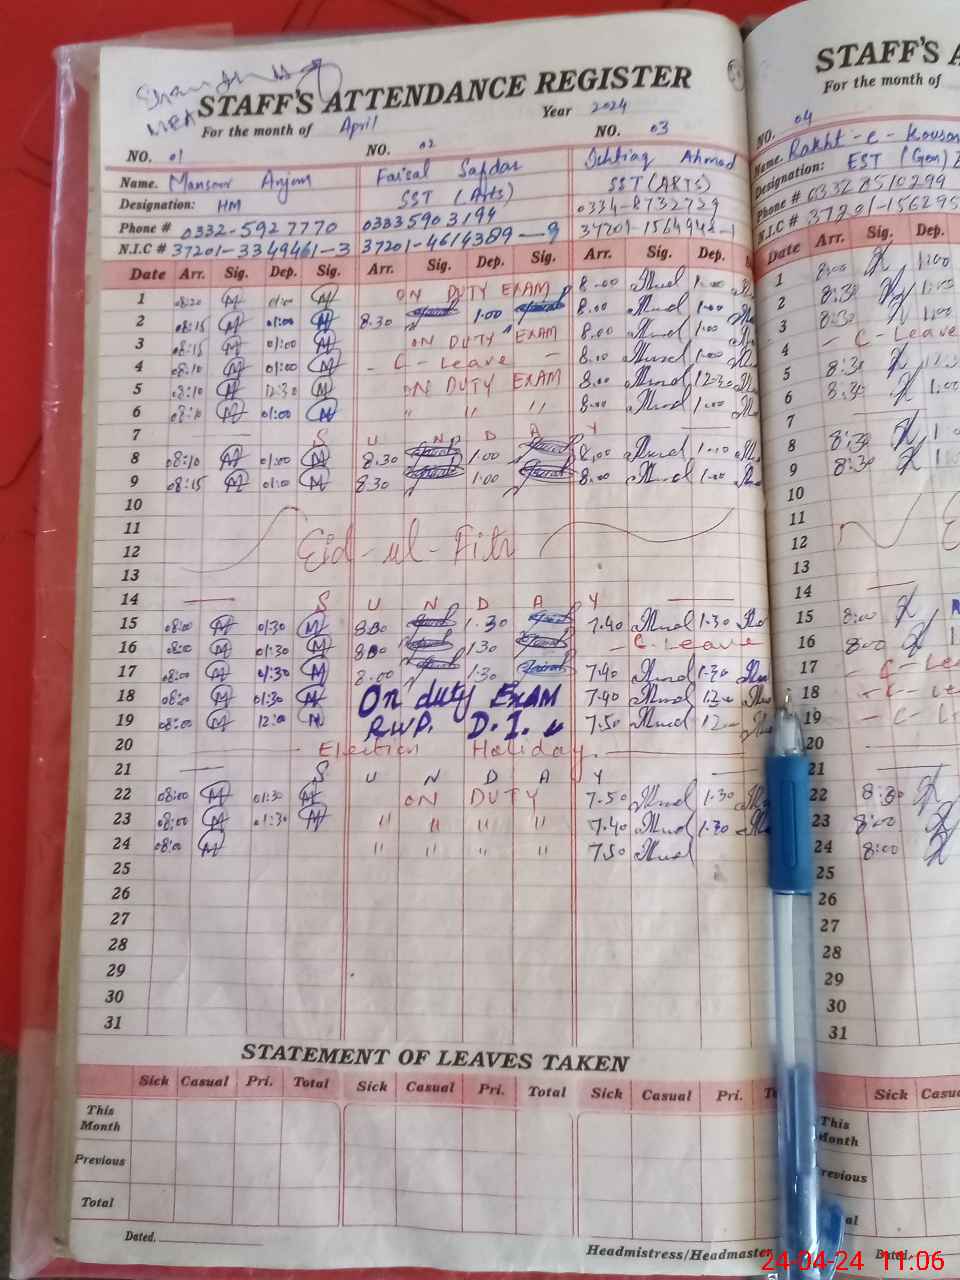 STAFF'S ATTENDANCE REGISTER
For the month of April Year 2024
NO. 01 NO. 02 NO. 03
Name. Mansoor Anjom Faisal Safdar Ishtiaq Ahmad
Designation: HM SST (Arts) SST (ARTS)
Phone # 0332-5927770 03335903194 0334-8732729
N.I.C # 37201-3349461-3 37201-4614389-9
Date Arr. Sig. Dep. Sig. Arr. Sig. Dep. Sig. Arr. Sig. Dep.
1 08:20 M 01:00 M ON DUTY EXAM 8.00 1.00
2 08:15 M 01:00 M 8.30 1.00 8.00 1.00
3 08:15 M 01:00 M ON DUTY EXAM 8.00 1.00
4 08:10 M 01:00 M - C-Leave - 8.00 1.00
5 08:10 M 12:30 M ON DUTY EXAM 8.00 12.30
6 08:10 M 01:00 M " " " 8.00 1.00
7 S U N D A Y
8 08:10 M 01:00 M 8.30 1.00 8.00 1.00
9 08:15 M 01:00 M 8.30 1.00 8.00 1.00
10
11
12 Eid-ul-Fitr
13
14 S U N D A Y
15 08:00 M 01:30 M 1.30 7.40 1.30
16 08:00 M 01:30 M 1.30 - C-Leave
17 08:00 M 01:30 M 8.00 1.30 7.40 1.30
18 08:00 M 01:30 M On duty EXAM 7.40
19 08:00 M 12:00 M RWP. D.I. 7.50 12
20 Election Holiday.
21 S U N D A Y
22 08:00 M 01:30 M ON DUTY 7.50 1.30
23 08:00 M 01:30 M " " " " 7.40 1.30
24 08:00 M " " " " 7.50
25
26
27
28
29
30
31
STATEMENT OF LEAVES TAKEN
Sick Casual Pri. Total Sick Casual Pri. Total Sick Casual Pri.
This
Month
Previous
Total
Dated.
Headmistress/Headmaster
STAFF'S A
For the month of
NO. 04
Name. Rakht-e-Kousar
Designation: EST (Gen)
Phone # 0332 8510299
N.I.C # 37201-156295
Date Arr. Sig. Dep.
1 8:00 1:00
2 8:30 1:00
3 8:30 1:00
4 - C-Leave
5 8:30
6 8:30 1:00
7
8 8:30
9 8:30
10
11
12
13
14
15 8:00
16 8:00
17 - C-Lea
18 - C-Le
19 - C-L
20
21
22 8:30
23 8:00
24 8:00
25
26
27
28
29
30
31
Sick
This
Month
Dated.
24-04-24 11:06